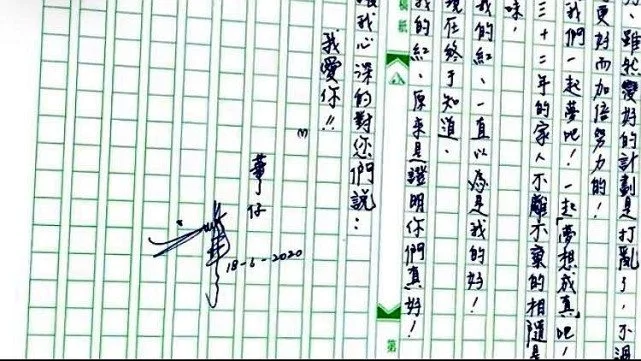 雖然變好的計劃是打亂了，不過
更好而加倍努力的！
我們一起夢吧！一起「夢想成真」吧！
三十二年的家人不離不棄的相隨是
味，
我的紅、一直以為是我的好！
現在終于知道、
我的紅、原來是證明你們真好！
稿紙
第
我心深的對您們說：
我愛你!!
仔
18-6-2020